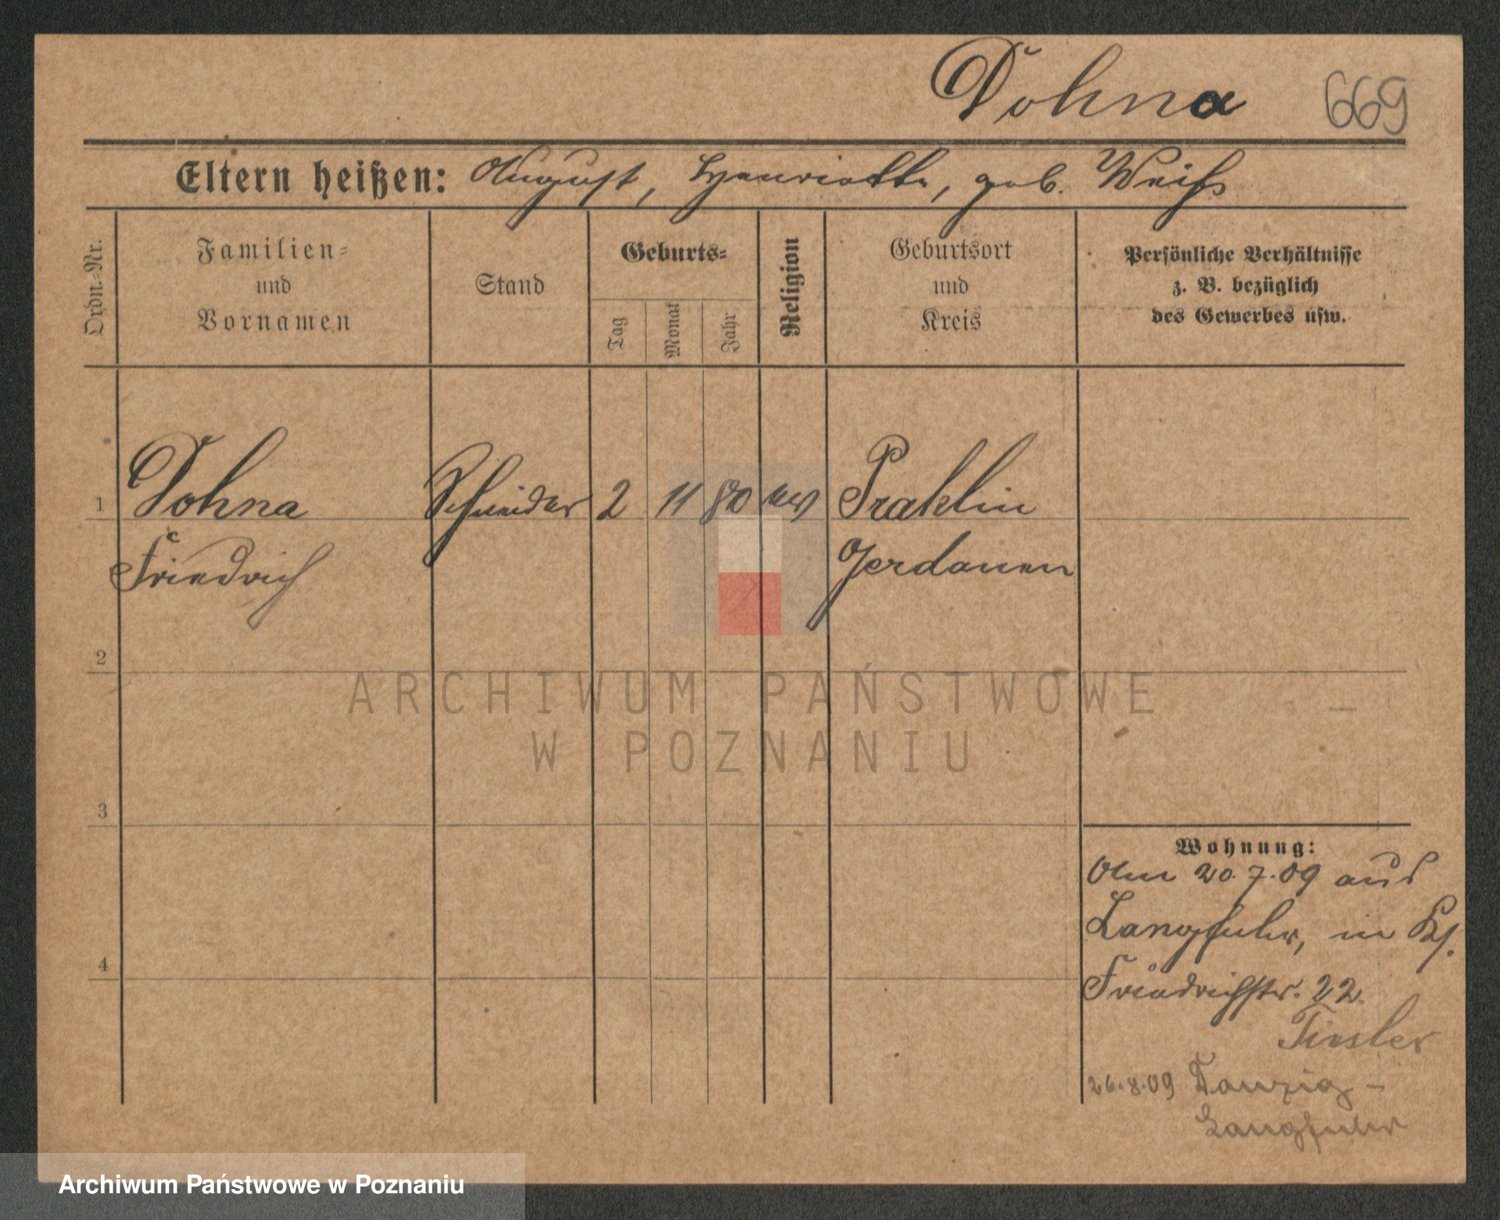 Dohna 669
Eltern heißen: August, Henriette, geb. Weiß
Ordn.-Nr.
Familien-
und
Vornamen
Stand
Geburts-
Tag
Monat
Jahr
Religion
Geburtsort
und
Kreis
Persönliche Verhältnisse
z. B. bezüglich
des Gewerbes usw.
1 Dohna Schneider 2 11 80 ev Praklin
Friedrich Gerdauen
2
ARCHIWUM PAŃSTWOWE
W POZNANIU
3
Wohnung:
Am 20.7.09 aus
Langfuhr, in
4
Friedrichstr. 22.
Tiesler
26.8.09 Danzig-
Langfuhr
Archiwum Państwowe w Poznaniu